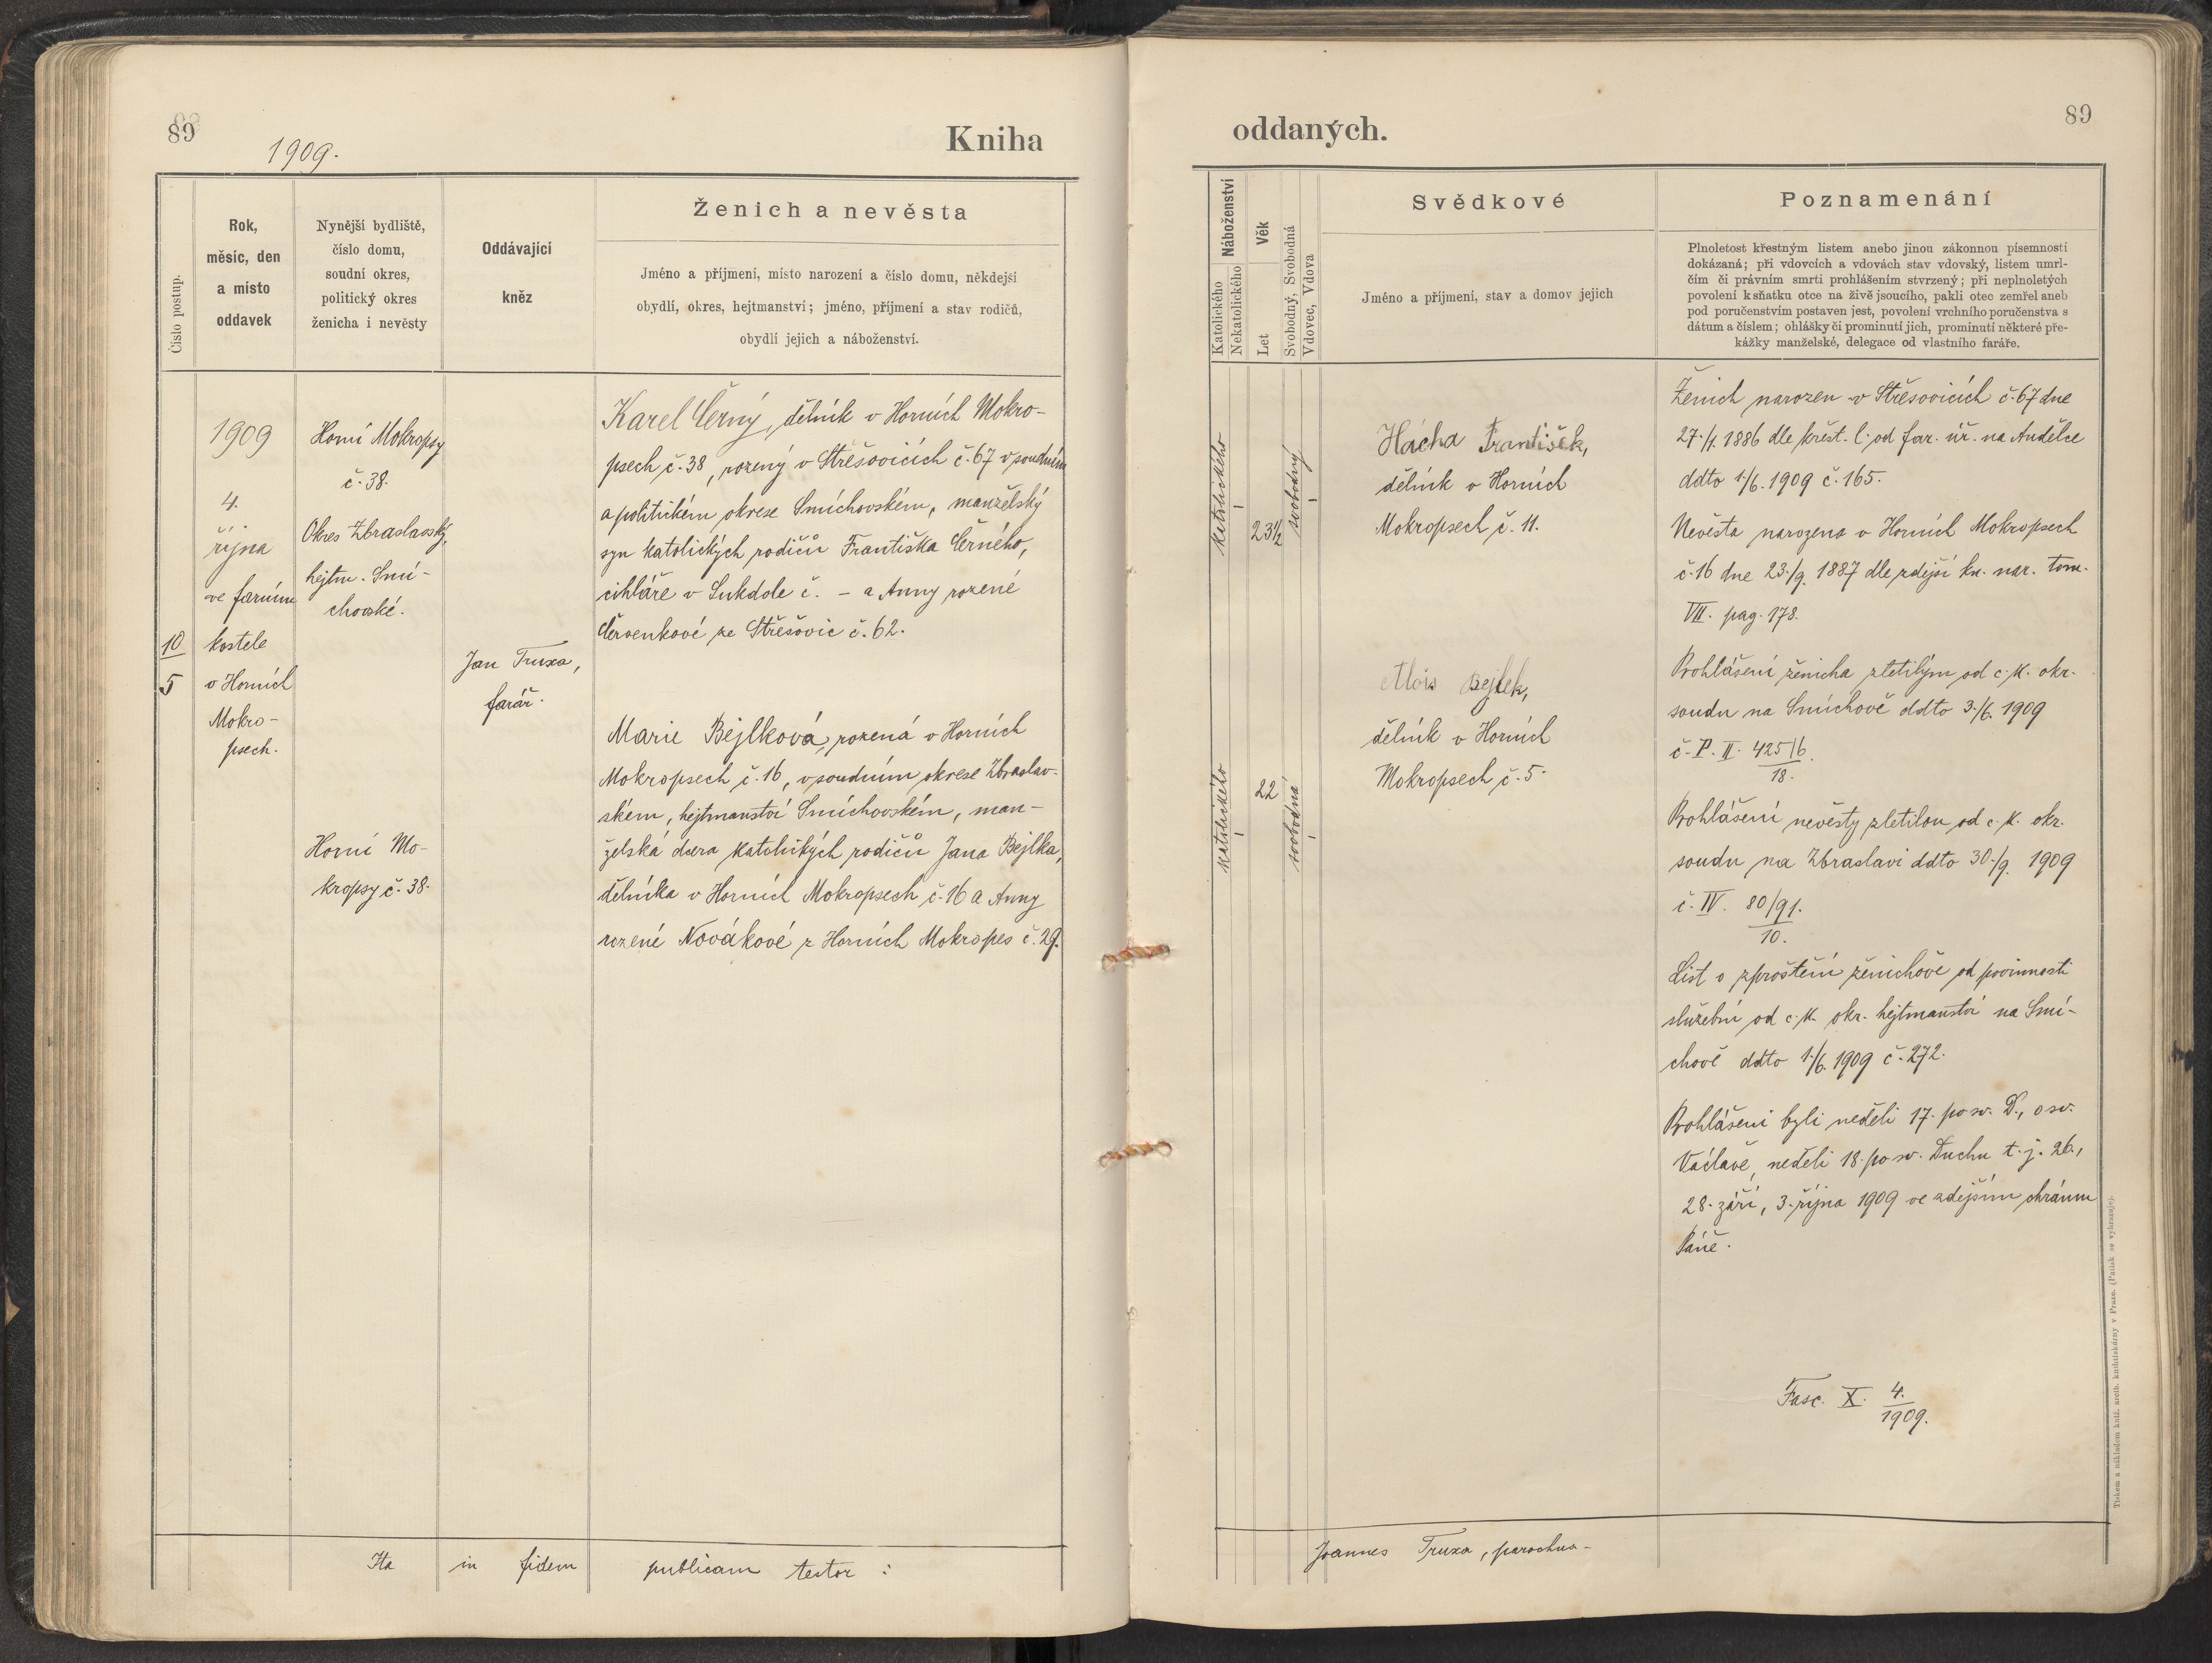 89
1909.
Kniha
Číslo postup.
Rok,
měsíc, den
a místo
oddavek
Nynější bydliště,
číslo domu,
soudní okres,
politický okres
ženicha i nevěsty
Oddávající
kněz
Ženich a nevěsta
Jméno a příjmení, místo narození a číslo domu, někdejší
obydlí, okres, hejtmanství; jméno, příjmení a stav rodičů,
obydlí jejich a náboženství.
10
5
1909
4.
října
ve farním
kostele
v Horních
Mokro-
psech.
Horní Mokropsy
č. 38.
Okres Zbraslavský,
hejtm. Smí-
chovské.
Horní Mo-
kropsy č. 38.
Jan Truxa,
farář.
Karel Černý, dělník v Horních Mokro-
psech č. 38, rozený v Střešovicích č. 67 v soudním
a politickém okrese Smíchovském, manželský
syn katolických rodičů Františka Černého,
cihláře v Sukdole č. – a Anny rozené
Červenkové ze Střešovic č. 62.
Marie Bejlková, rozená v Horních
Mokropsech č. 16, v soudním okrese Zbraslav-
ském, hejtmanství Smíchovském, man-
želská dcera katolických rodičů Jana Bejlka,
dělníka v Horních Mokropsech č. 16 a Anny
rozené Novákové z Horních Mokropes č. 29.
Ita in fidem publicam testor :
oddaných.
89
Náboženství
Katolického
Nekatolického
Věk
Let
Svobodný, Svobodná
Vdovec, Vdova
Svědkové
Jméno a příjmení, stav a domov jejich
Poznamenání
Plnoletost křestným listem anebo jinou zákonnou písemností
dokázaná; při vdovcích a vdovách stav vdovský, listem umrl-
čím či právním smrti prohlášením stvrzený; při neplnoletých
povolení k sňatku otce na živě jsoucího, pakli otec zemřel aneb
pod poručenstvím postaven jest, povolení vrchního poručenstva s
dátum a číslem; ohlášky či prominutí jich, prominutí některé pře-
kážky manželské, delegace od vlastního faráře.
katolického
23½
svobodný
katolického
22
svobodná
Hácha František,
dělník v Horních
Mokropsech č. 11.
Alois Bejlek,
dělník v Horních
Mokropsech č. 5.
Ženich narozen v Střešovicích č. 67 dne
27./1. 1886 dle křest. l. od far. úř. na Anděľce
ddto 1./6. 1909 č. 165.
Nevěsta narozena v Horních Mokropsech
č. 16 dne 23./9. 1887 dle zdejší kn. nar. tom.
VII. pag. 178.
Prohlášení ženicha zletilým od c. k. okr.
soudu na Smíchově ddto 3./6. 1909
č. P. II. 425/6
18.
Prohlášení nevěsty zletilou od c. k. okr.
soudu na Zbraslavi ddto 30./9. 1909
č. IV. 80/91.
10.
List o zproštění ženichově od povinnosti
služební od c. k. okr. hejtmanství na Smí-
chově ddto 1./6. 1909 č. 272.
Prohlášeni byli neděli 17. po sv. D., o sv.
Václavě, neděli 18. po sv. Duchu t. j. 26.,
28. září, 3. října 1909 ve zdejším chrámu
Páně.
Fasc. X. 4.
1909.
Joannes Truxa, parochus.
Tiskem a nákladem kníž. arcib. knihtiskárny v Praze. (Patisk se vyhrazuje).